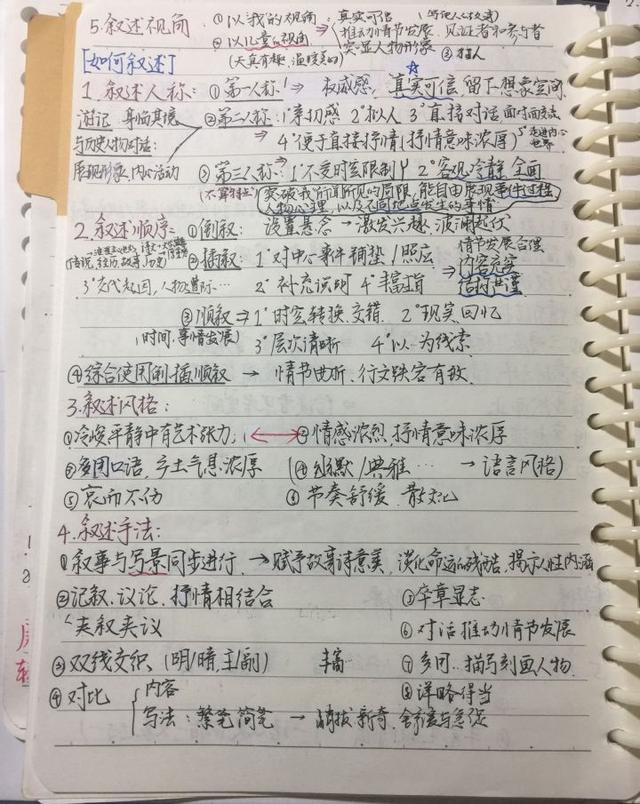 5.叙述视角 ①以我的视角 真实可信
②以儿童的视角 推动情节发展 见证者和参与者
(天真有趣,温暖美好) 突显人物形象 ③插人
[如何叙述]
1.叙述人称: ①第一人称 → 权威感, 真实可信 留下想象空间
游记 身临其境 ②第二人称: 1°亲切感 2°拟人 3°直接对话 面对面交流
与历史人物对话: ⇒ 4°便于直接抒情(抒情意味浓厚) 5°走进内心世界
展现形象、内心活动 ③第三人称: 1°不受时空限制 2°客观冷静 全面
(不算特点) 突破我所谓所见的局限,能自由展现事件过程
人物心理,以及不同地点发生的事情
2.叙述顺序: ①倒叙: 设置悬念 → 激发兴趣,波澜起伏
传说,经历,故事,历史 ②插叙: 1°对中心事件铺垫/照应 情节发展合理
内容充实
3°交代起因,人物遭际… 2°补充说明 4°丰富主旨 ⇒ 结构严谨
③顺叙 ⇒ 1°时空转换、交错 2°现实、回忆
(时间、事情发展) 3°层次清晰 4°以…为线索
④综合使用倒、插、顺叙 → 情节曲折、行文跌宕有致
3.叙述风格:
①冷峻平静中有艺术张力, ⟷ ②情感浓烈,抒情意味浓厚
③多用口语,乡土气息浓厚 (④幽默/典雅… → 语言风格)
⑤哀而不伤 ⑥节奏舒缓、散文化
4.叙述手法:
①叙事与写景同步进行, → 赋予故事诗意美,淡化命运的残酷,揭示人性内涵
②记叙、议论、抒情相结合 ⑤卒章显志
夹叙夹议 ⑥对话推动情节发展
③双线交织、(明/暗,主/副) 丰富 ⑦多用…描写刻画人物
④对比 内容 ⑧详略得当
写法: 繁笔简笔 → 新奇、舒缓与急促